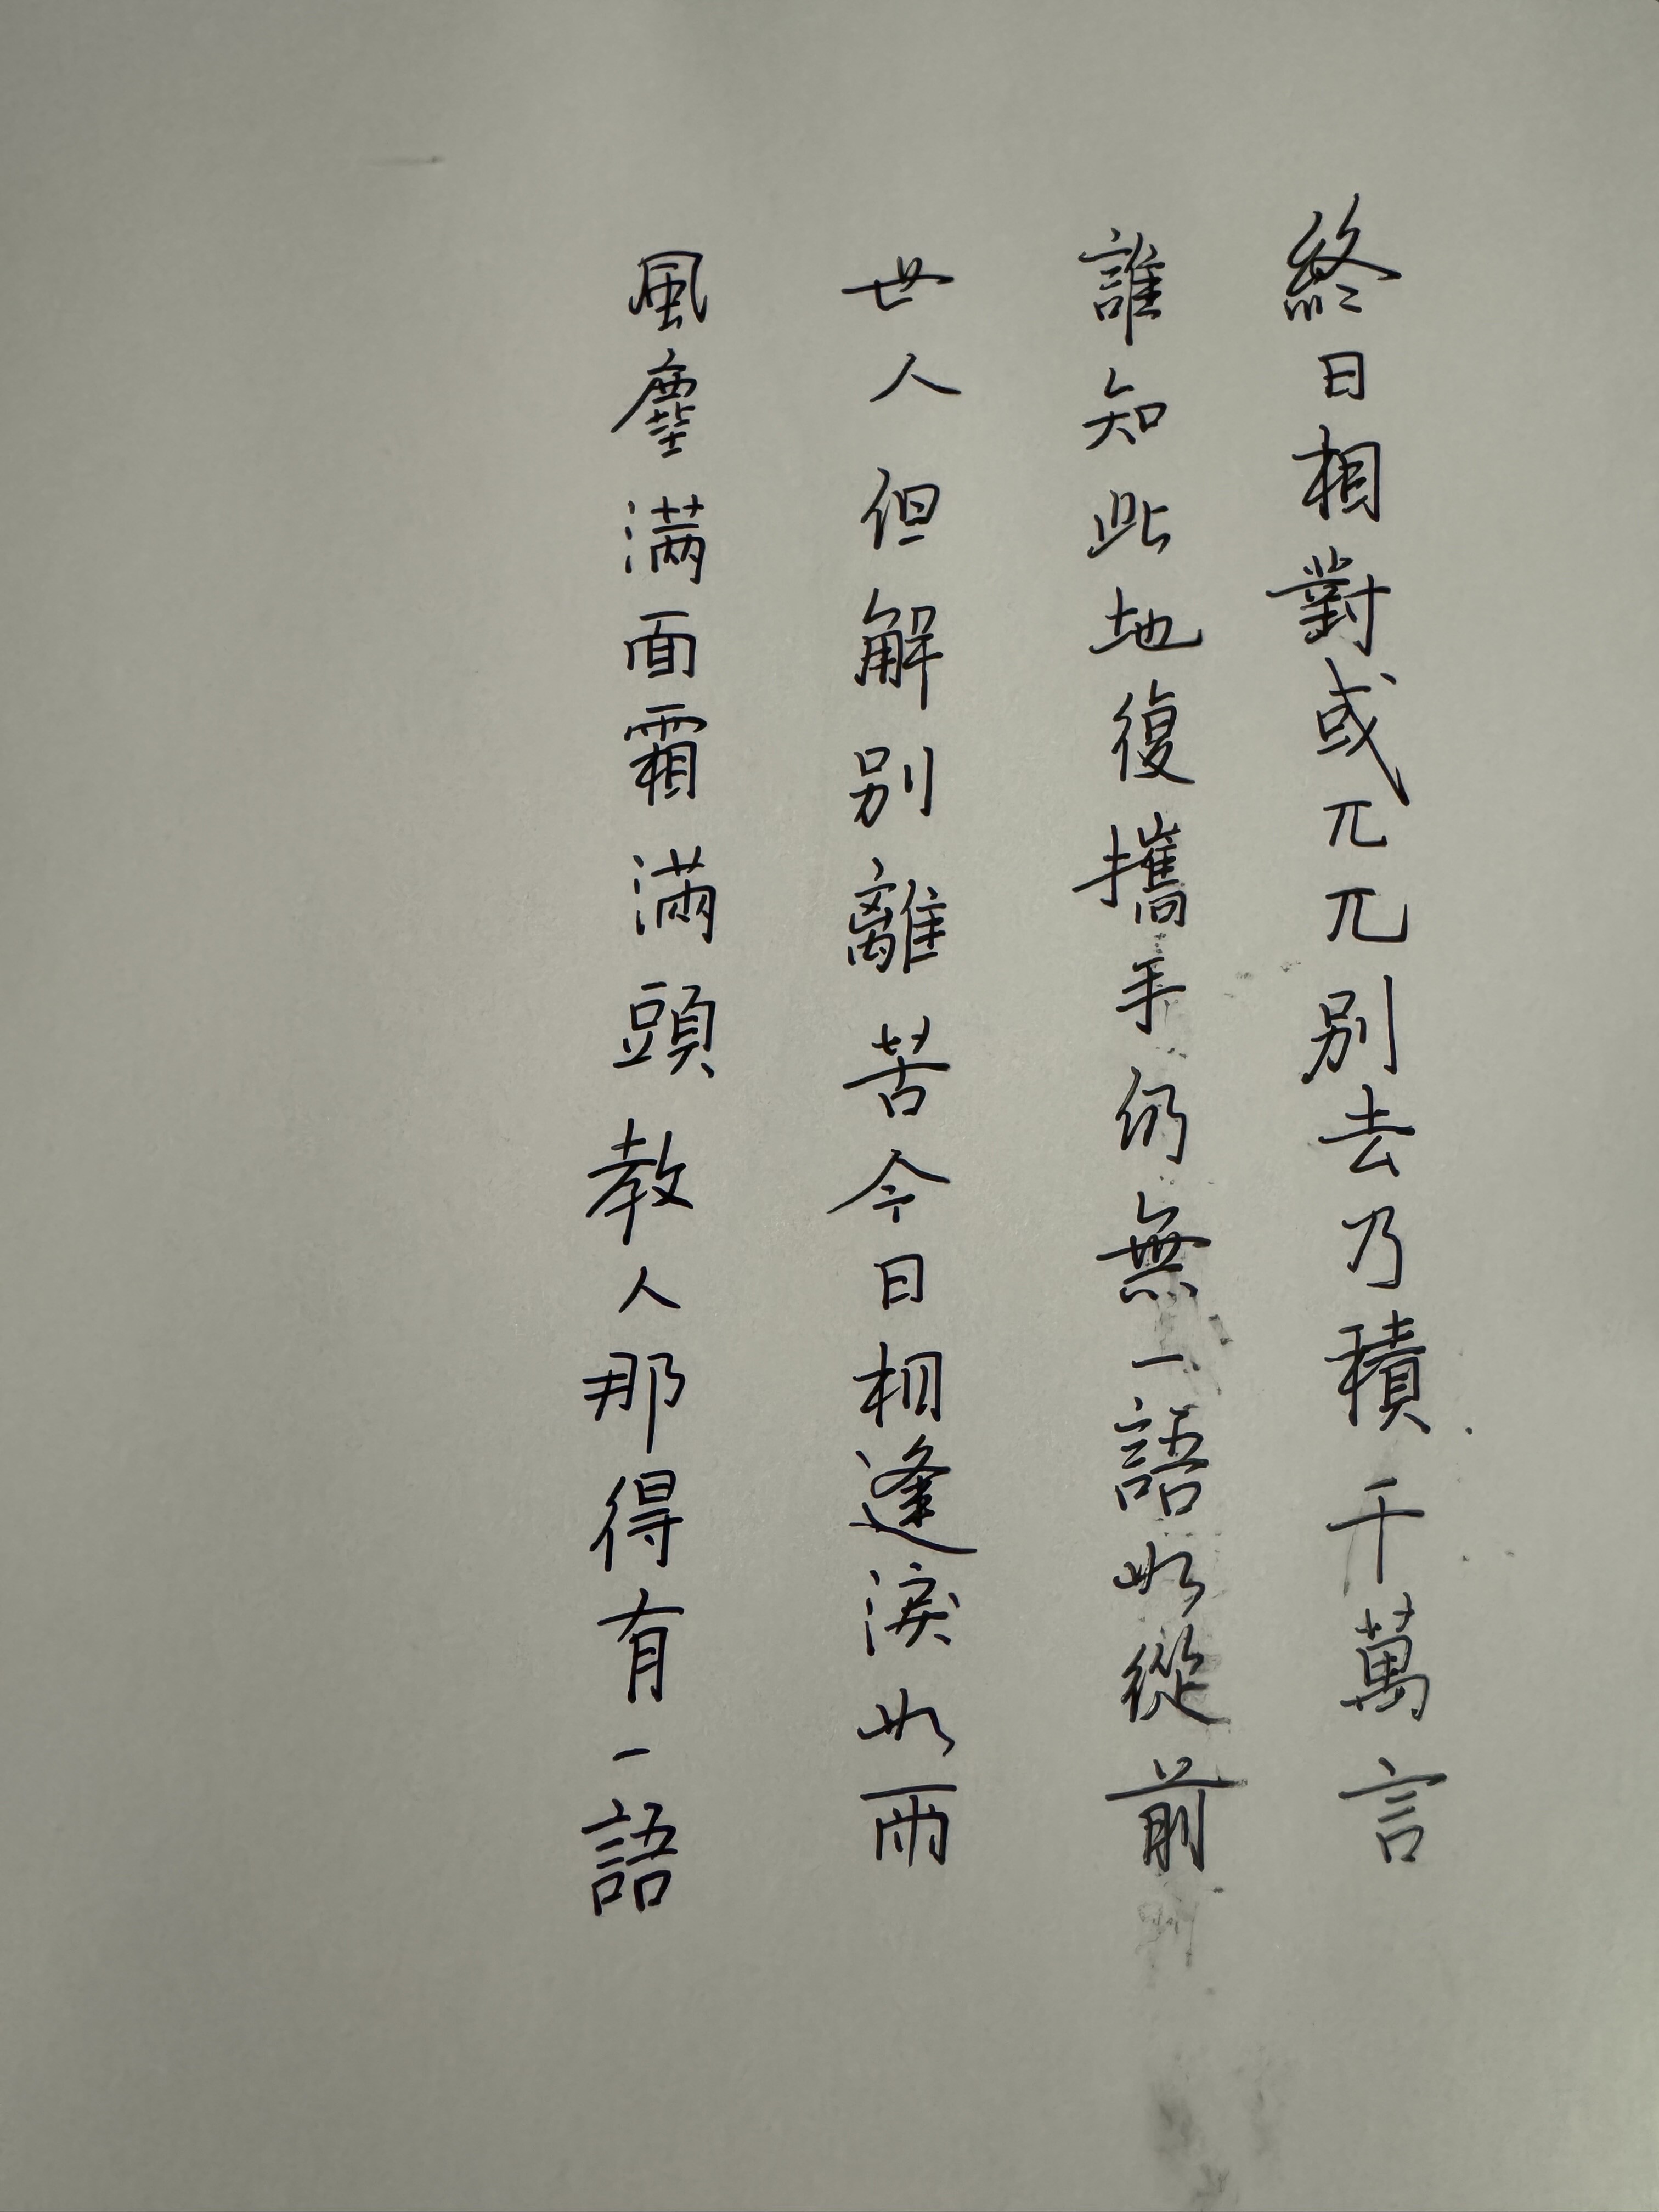 終日相對或兀兀別去乃積千萬言
誰知此地復攜手仍無一語如從前
世人但解別離苦今日相逢淚如雨
風塵滿面霜滿頭教人那得有一語